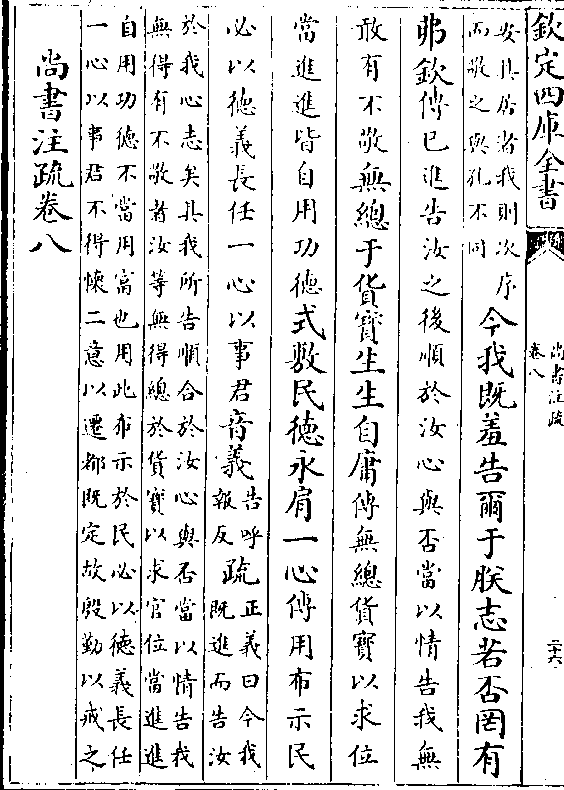 欽定四庫全書
尚書注疏
卷八
二十六
安其居者我則次序
而敬之與孔不同
今我既羞告爾于朕志若否罔有
弗欽傳已進告汝之後順於汝心與否當以情告我無
敢有不敬無總于貨寳生生自庸傳無總貨寳以求位
當進進皆自用功德式敷民德永肩一心傳用布示民
必以德義長任一心以事君音義告呼
報反疏正義曰今我
既進而告汝
於我心志矣其我所告順合於汝心與否當以情告我
無得有不敬者汝等無得總於貨寳以求官位當進進
自用功德不當用富也用此布示於民必以德義長任
一心以事君不得懐二意以遷都既定故殷勤以戒之
尚書注疏卷八